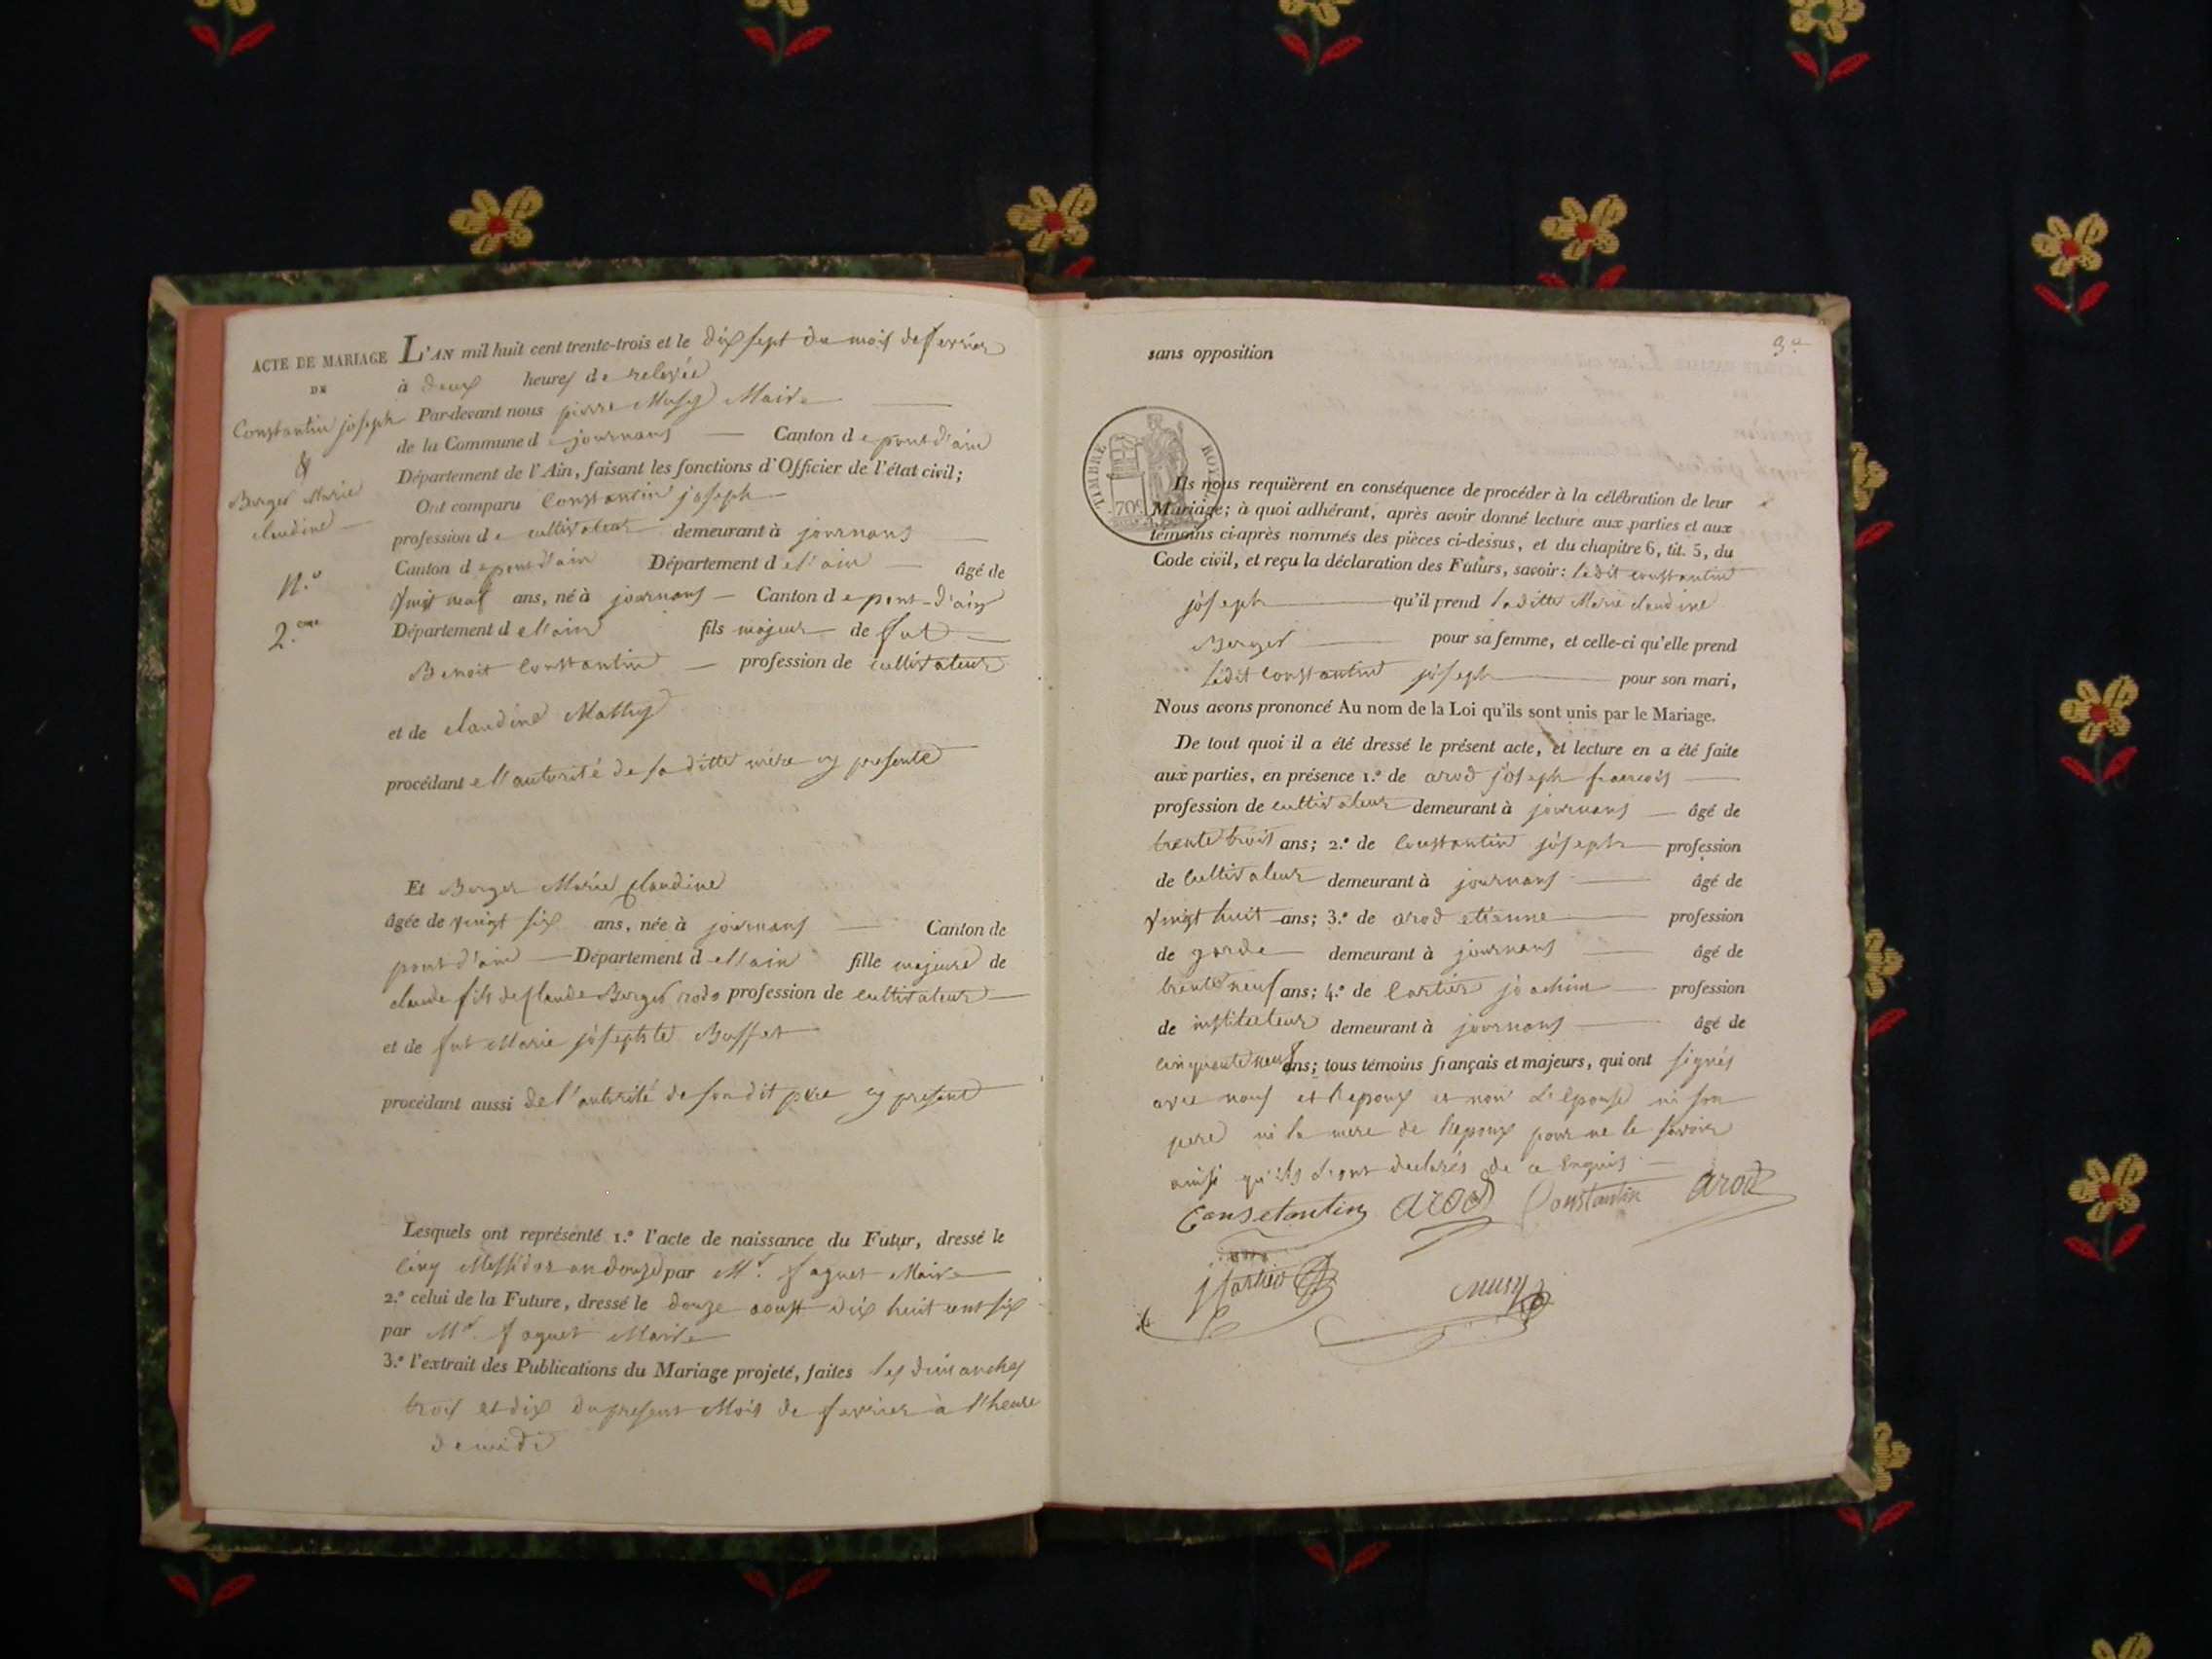 ACTE DE MARIAGE
DE
Constantin joseph
&
Berger Marie
claudine
N.º
2.eme
L'AN mil huit cent trente-trois et le dix sept du mois de fevrier
à deux heures de relevée
Par-devant nous pierre Musy Maire
de la Commune de journans Canton de pont d'ain
Département de l'Ain, faisant les fonctions d'Officier de l'état civil;
Ont comparu Constantin joseph
profession de cultivateur demeurant à journans
Canton de pont d'ain Département de l'ain âgé de
vingt neuf ans, né à journans Canton de pont-d'ain
Département de l'ain fils majeur de fut
Benoit Constantin profession de cultivateur
et de claudine Mathy
procédant de l'autorité de sa ditte mère cy presente
Et Berger Marie claudine
âgée de vingt six ans, née à journans Canton de
pont d'ain Département de l'ain fille majeure de
claude fils de claude Berger profession de cultivateur
et de fut Marie josephte Buffet
procédant aussi de l'autorité de son dit père cy present
Lesquels ont représenté 1.º l'acte de naissance du Futur, dressé le
cinq Messidor an douze par Mr. faguet Maire
2.º celui de la Future, dressé le douze aoust dix huit cent six
par Mr. faguet Maire
3.º l'extrait des Publications du Mariage projeté, faites les dimanches
trois et dix du present Mois de fevrier à l'heure
de midi
3.e
sans opposition
TIMBRE ROYAL
70c
Ils nous requièrent en conséquence de procéder à la célébration de leur
Mariage; à quoi adhérant, après avoir donné lecture aux parties et aux
témoins ci-après nommés des pièces ci-dessus, et du chapitre 6, tit. 5, du
Code civil, et reçu la déclaration des Futurs, savoir: ledit constantin
joseph qu'il prend laditte Marie claudine
Berger pour sa femme, et celle-ci qu'elle prend
ledit Constantin joseph pour son mari,
Nous avons prononcé Au nom de la Loi qu'ils sont unis par le Mariage.
De tout quoi il a été dressé le présent acte, et lecture en a été faite
aux parties, en présence 1.º de arod joseph francois
profession de cultivateur demeurant à journans âgé de
trente trois ans; 2.º de Constantin joseph profession
de cultivateur demeurant à journans âgé de
vingt huit ans; 3.º de arod etienne profession
de garde demeurant à journans âgé de
trente neuf ans; 4.º de Cartier joachim profession
de instituteur demeurant à journans âgé de
cinquante neuf ans; tous témoins français et majeurs, qui ont signés
avec nous et l'epoux et non l'epouse ni son
pere ni la mere de l'epoux pour ne le savoir
ainsi qu'ils l'ont declarés de ce Enquis
Consetantin arod Constantin arod
jCartier musy